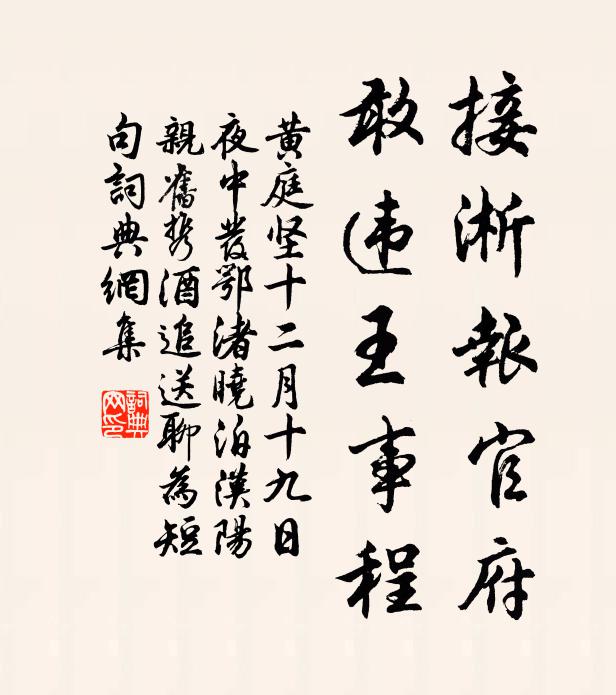 接淅報官府
敢违王事程
黄庭坚十二月十九日
夜中發鄂渚曉泊漢陽
親舊携酒追送聊為短
句詞典網集
詞典網印